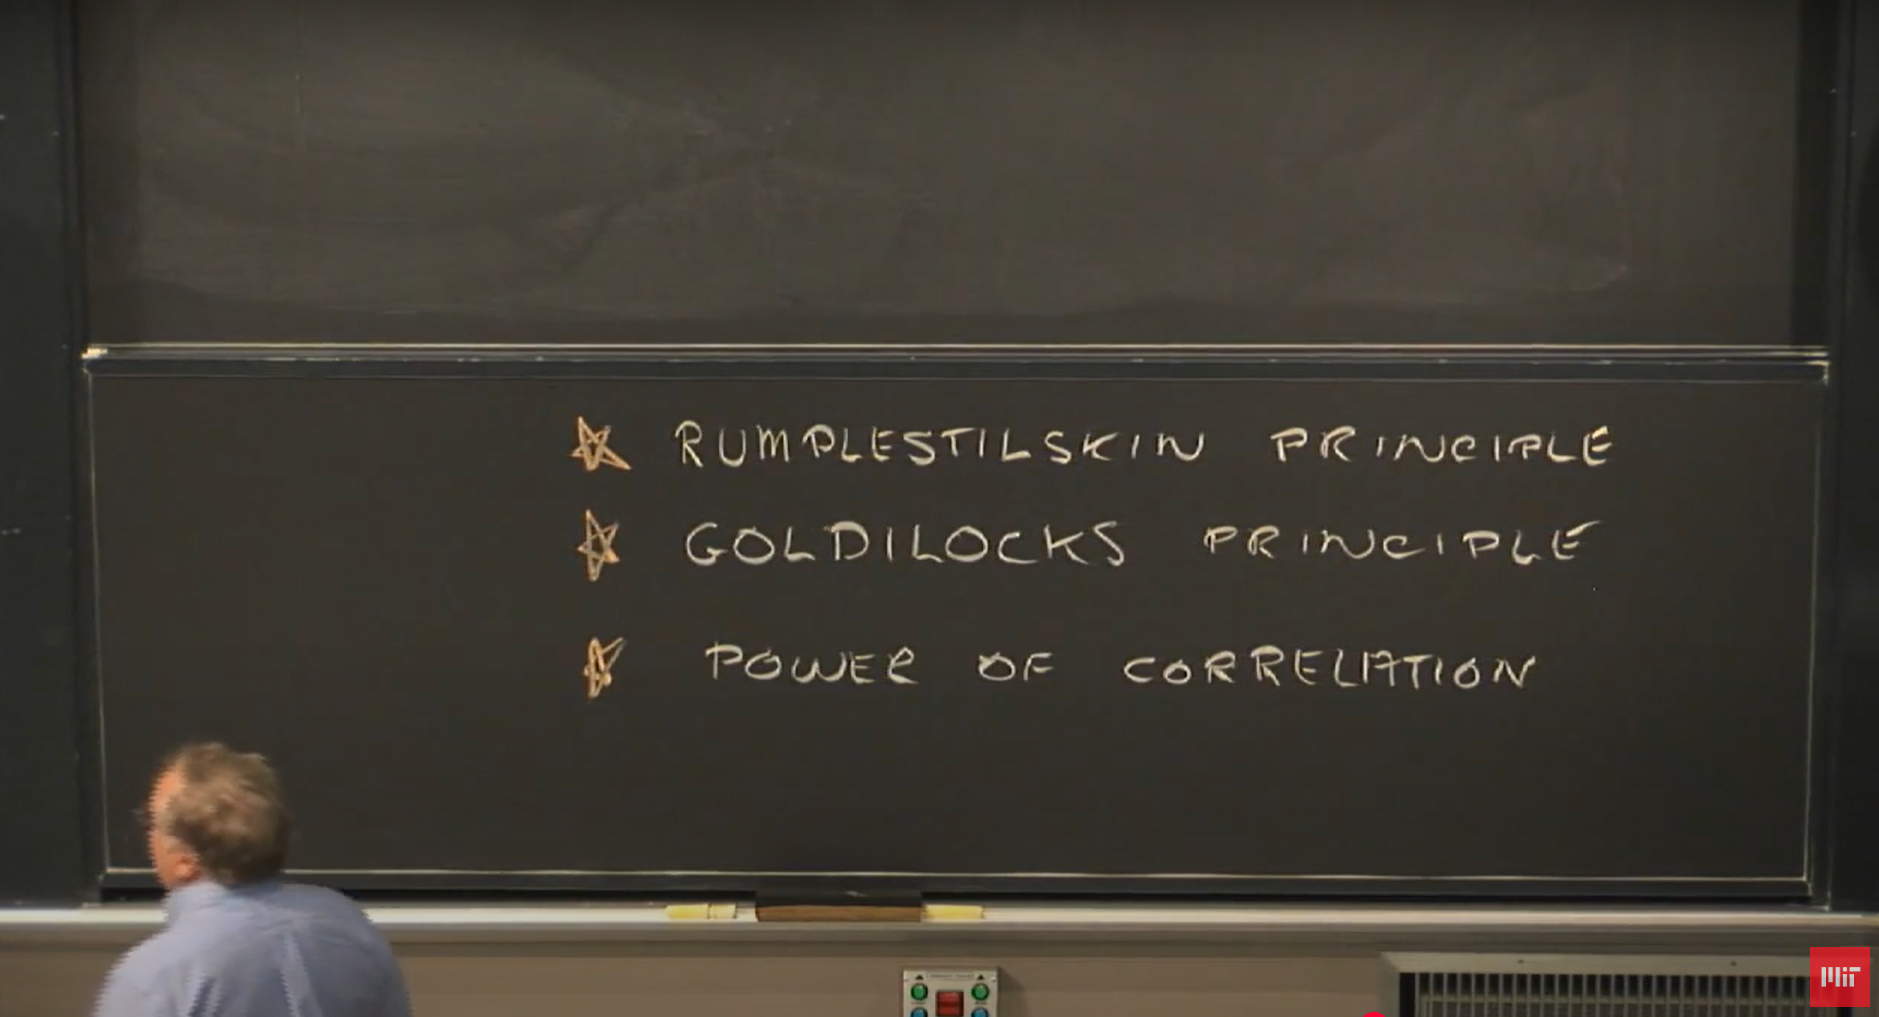 RUMPLESTILSKIN PRINCIPLE
GOLDILOCKS PRINCIPLE
POWER OF CORRELATION
MIT